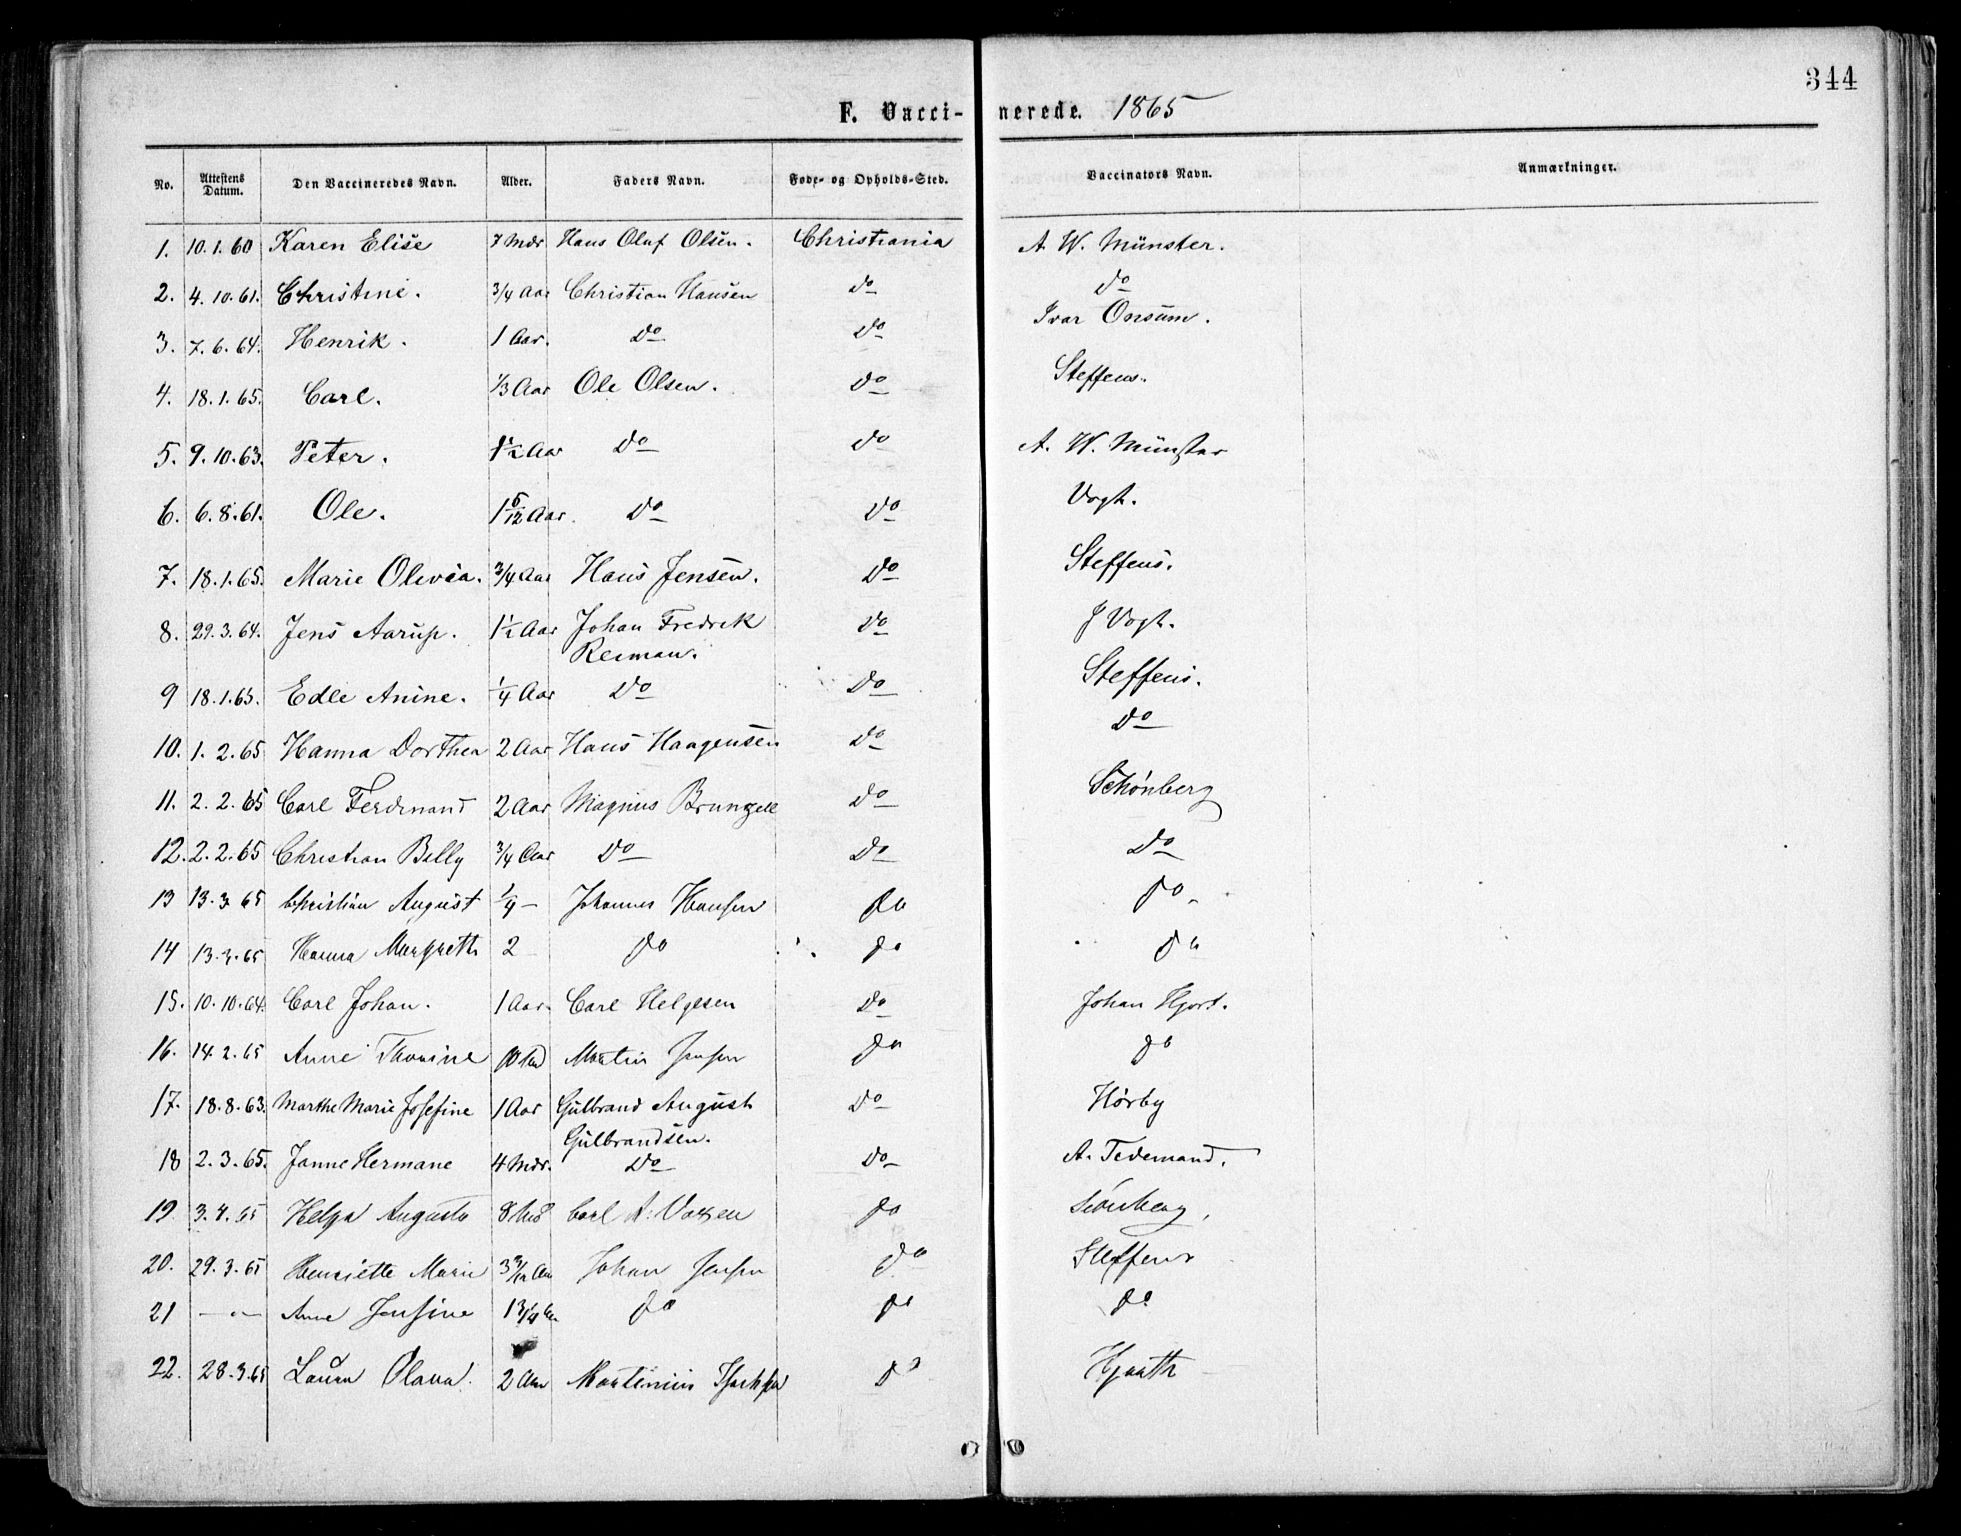 344
F. Vaccinerede. 1865
No. Attestens Datum. Den Vaccineredes Navn. Alder. Faders Navn. Føde- og Opholds-Sted. Vaccinators Navn. Anmærkninger.
1. 10.1.60 Karen Elise 7 Mdr Hans Oluf Olsen. Christiania A. W. Münster.
2. 4.10.61. Christine. 3/4 Aar Christian Hansen Do Do
3. 7.6.64. Henrik. 1 Aar. Do Do Ivar Onsum.
4. 18.1.65. Carl. 1/3 Aar Ole Olsen. Do Steffens.
5. 9.10.63. Peter. 1 1/2 Aar Do Do A. W. Münster
6. 6.8.61. Ole. 1 5/12 Aar. Do Do Vogt.
7. 18.1.65. Marie Olivia. 3/4 Aar Hans Jensen. Do Steffens.
8. 29.3.64. Jens Aarup. 1 1/2 Aar Johan Fredrik Do J Vogt.
Reiman.
9 18.1.65. Edle Anine. 1/4 Aar Do Do Steffens.
10. 1.2.65 Hanna Dorthea 2 Aar Hans Haagensen Do Do
11. 2.2.65 Carl Ferdinand 2 Aar Magnus Brunzell Do Schønberg
12. 2.2.65 Christian Billy 3/4 Aar Do Do Do
13 13.3.65 Christian August Johannes Hansen Do Do
14 13.3.65 Hanna Margreth 2 Do Do Do
15. 10.10.64. Carl Johan. 1 Aar. Carl Helgesen Do Johan Hjort.
16. 14.2.65 Anne Thonine 10 Martin Jensen Do Do
17. 18.8.63. Marthe Marie Josefine 1 Aar Gulbrand August Do Hørby
Gulbrandsen.
18 2.3.65. Janne Hermane 4 Mdr. Do Do A. Tidemand.
19 3.4.65 Helga Augusta 8 Carl A: Do Sconberg,
20. 29.3.65 Henriette Marie Johan Jensen Do Steffens
21 — " — Anne Jensine 1 3/4 Aar Do Do Do
22. 28.3.65 Laura Olava. 2 Aar Martinius Do